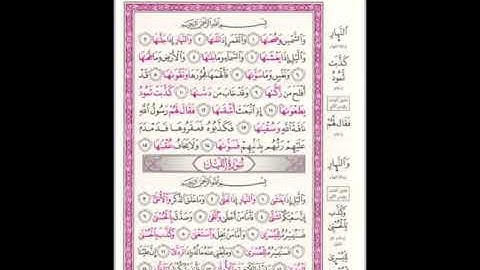 بِسْمِ اللَّهِ الرَّحْمَٰنِ الرَّحِيمِ
وَالشَّمْسِ وَضُحَىٰهَا ١ وَالْقَمَرِ إِذَا تَلَىٰهَا ٢ وَالنَّهَارِ إِذَا جَلَّىٰهَا ٣
وَاللَّيْلِ إِذَا يَغْشَىٰهَا ٤ وَالسَّمَاءِ وَمَا بَنَىٰهَا ٥ وَالْأَرْضِ وَمَا طَحَىٰهَا
٦ وَنَفْسٍ وَمَا سَوَّىٰهَا ٧ فَأَلْهَمَهَا فُجُورَهَا وَتَقْوَىٰهَا ٨ قَدْ
أَفْلَحَ مَن زَكَّىٰهَا ٩ وَقَدْ خَابَ مَن دَسَّىٰهَا ١٠ كَذَّبَت ثَّمُودُ
بِطَغْوَىٰهَا ١١ إِذِ انبَعَثَ أَشْقَىٰهَا ١٢ فَقَالَ لَهُمْ رَسُولُ اللَّهِ
نَاقَةَ اللَّهِ وَسُقْيَىٰهَا ١٣ فَكَذَّبُوهُ فَعَقَرُوهَا فَدَمْدَمَ
عَلَيْهِمْ رَبُّهُم بِذَنبِهِمْ فَسَوَّىٰهَا ١٤ وَلَا يَخَافُ عُقْبَىٰهَا ١٥
سُورَةُ اللَّيْلِ
بِسْمِ اللَّهِ الرَّحْمَٰنِ الرَّحِيمِ
وَاللَّيْلِ إِذَا يَغْشَىٰ ١ وَالنَّهَارِ إِذَا تَجَلَّىٰ ٢ وَمَا خَلَقَ الذَّكَرَ وَالْأُنثَىٰ ٣
إِنَّ سَعْيَكُمْ لَشَتَّىٰ ٤ فَأَمَّا مَنْ أَعْطَىٰ وَاتَّقَىٰ ٥ وَصَدَّقَ بِالْحُسْنَىٰ ٦
فَسَنُيَسِّرُهُ لِلْيُسْرَىٰ ٧ وَأَمَّا مَن بَخِلَ وَاسْتَغْنَىٰ ٨ وَكَذَّبَ بِالْحُسْنَىٰ
٩ فَسَنُيَسِّرُهُ لِلْعُسْرَىٰ ١٠ وَمَا يُغْنِي عَنْهُ مَالُهُ إِذَا تَرَدَّىٰ ١١ إِنَّ عَلَيْنَا
وَالنَّهَارِ
كَذَّبَت
ثَّمُودُ
فَقَالَ لَهُمْ
وَالنَّهَارِ
وَكَذَّبَ
بِالْحُسْنَىٰ
لِلْيُسْرَىٰ